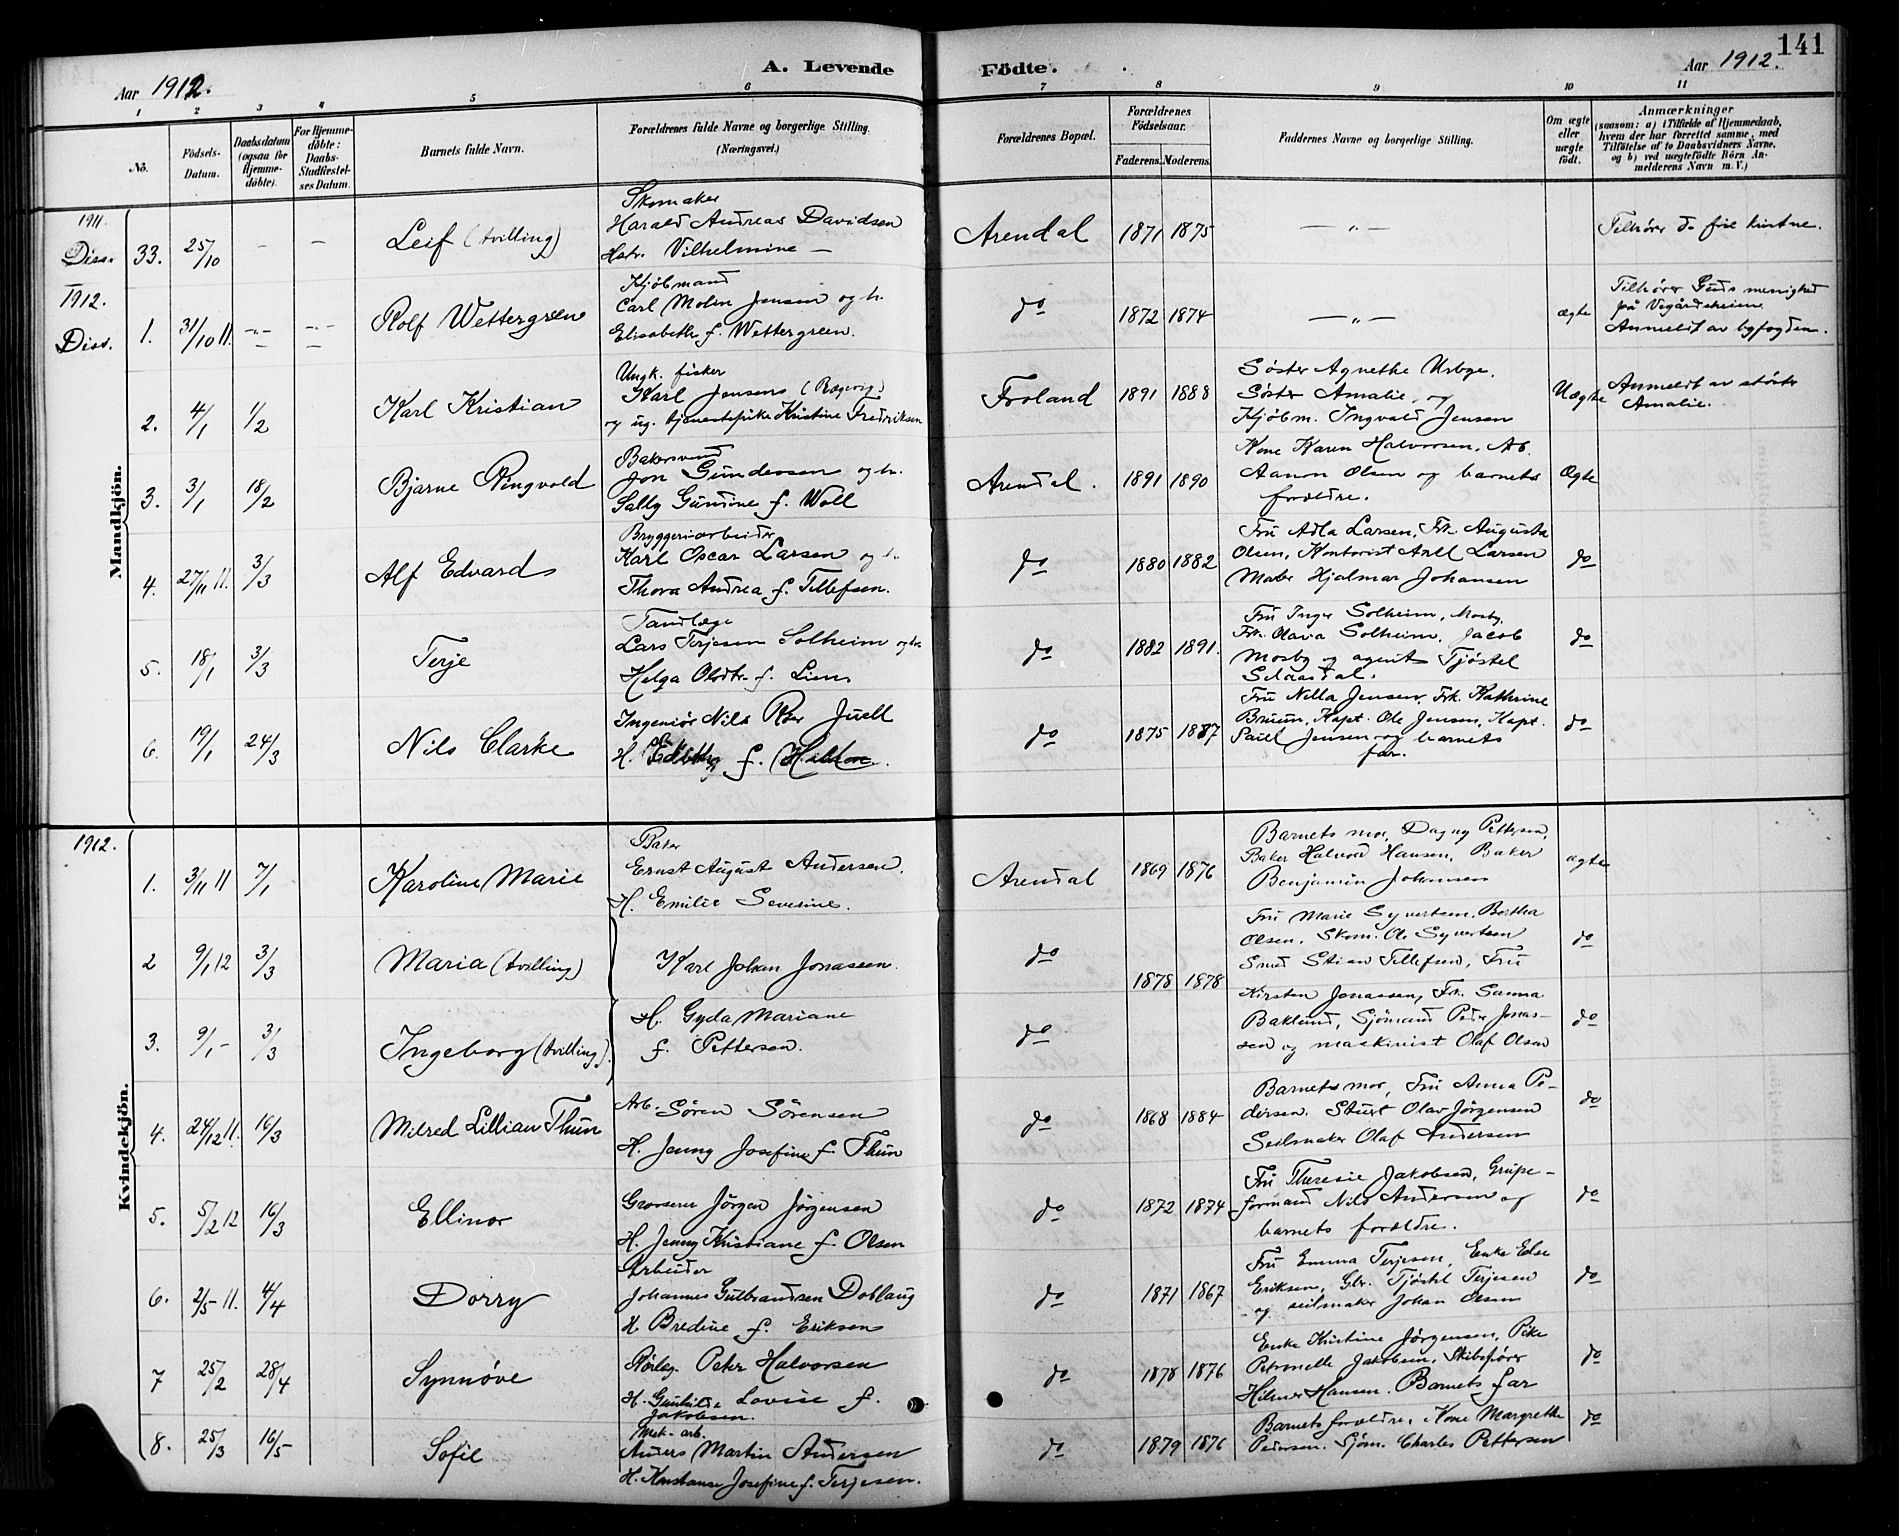 141
A. Levende Födte.
Aar 1912.
Aar 1912.
1 2 3 4 5 6 7 8 9 10 11
No.
Födsels-Datum.
Daabsdatum (ogsaa for Hjemmedöbte).
For Hjemmedöbte: Daabs-Stadfæstelses Datum.
Barnets fulde Navn.
Forældrenes fulde Navne og borgerlige Stilling. (Næringsvei.)
Forældrenes Bopæl.
Forældrenes Födselsaar.
Faderens. Moderens.
Faddernes Navne og borgerlige Stilling.
Om ægte eller uægte födt.
Anmærkninger
(saasom: a) i Tilfælde af Hjemmedaab, hvem der har forrettet samme, med Tilföielse af to Daabsvidners Navne, og b) ved uægtefödte Börn Anmelderens Navn m. V.)
Mandkjön.
1911.
Diss. 33. 25/10 – – Leif (tvilling)
Skomaker
Harald Andreas Davidsen
Hstr. Vilhelmine –
Arendal 1871 1875 — „ —
Tilhører de frie kristne.
1912.
Diss. 1. 31/10 11. Rolf Wettergreen
Kjøbmand
Carl Molin Jensen og h.
Elisabeth f. Wettergreen.
do 1872 1874 — „ — ægte
Tilhører Guds menighed
på Vegårdsheien
Anmeldt av byfogden.
2. 4/1 1/2 Karl Kristian
Ungk. fisker
Karl Jensen (Rægevig)
og ug. tjenestepike Kristine Fredriksen
Froland 1891 1888
Søster Agnethe Urbye,
Søster Amalie, og
Kjøbm. Ingvald Jensen
Uægte
Anmeldt av søster
Amalie.
3. 3/1 18/2 Bjarne Ringvold
Bakersvend
Jon Gundersen og h.
Sally Gundine f. Woll
Arendal. 1891 1890
Kone Karen Halvorsen, Ab.
Aanon Olsen og barnets
forældre.
Ægte
4. 27/11 11. 3/3 Alf Edvard
Bryggeriarbeider
Karl Oscar Larsen og h.
Thora Andrea f. Tellefsen.
do 1880 1882
Fru Adla Larsen, Frk. Augusta
Olsen, Kontorist Larsen
Maler Hjalmar Johansen
do
5. 18/1 3/3 Terje
Tandlæge
Lars Terjesen Solheim og h.
Helga f. Lien
do 1882 1891.
Fru Inger Solheim, Mosby,
Frk. Olava Solheim, Jacob
Mosby og agent Tjøstel
do
6. 19/1 24/3 Nils Clarke
Ingeniør Nils Roer Juell
H. f.
do 1875 1887
Fru Nella Jensen, Frk. Kathrine
Bruun, Kapt. Ole Jensen, Kapt.
Paul Jensen og barnets
far.
do
Kvindekjön.
1912.
1. 3/11 11 7/1 Karoline Marie
Baker
Ernst August Andersen.
H. Emilie Severine.
Arendal 1869 1876
Barnets mor, Dagny Pettersen,
Baker Halvord Hansen, Baker
Benjamin Johansen
ægte
2 9/1 12 3/3 Maria (tvilling)
Karl Johan Jonassen.
do 1878 1878
Fru Marie Syvertsen, Bertha
Olsen, Skom. Ole Syvertsen
Smed Stian Tellefsen, Fru
do
3. 9/1 – 3/3 Ingeborg (tvilling)
H. Gyda Mariane
f. Pettersen.
do
Kirsten Jonassen, Frk. Sanna
Baklund, Sjømand Peder Jonas-
sen og maskinist Olaf Olsen
do
4. 24/12 11. 16/3 Milred Lillian Thun
Arb. Sören Sörensen
H. Jenny Josefine f. Thun
do 1868 1884
Barnets mor, Fru Anna Pe-
dersen. Stuert Olav Jørgensen
Seilmaker Olaf Andersen
do
5. 5/2 12 16/3 Ellinor
Grosserer Jörgen Jörgensen
H. Jenny Kristiane f. Olsen
do 1872 1874
Fru Theresie Jakobsen, Grube-
formand Nils Andersen og
barnets forældre.
do
6. 2/5 11. 4/4 Dorry
Arbeider
Johannes Gulbrandsen Doblaug
H. Bredine f. Eriksen
do 1871 1867
Fru Emma Terjesen, Enke Else
Eriksen, Gbr. Tjøstel Terjesen
og seilmaker Johan Olsen
do
7 25/2 28/4 Synnöve
Rörlæg. Peter Halvorsen
H. Gunhilde Lovise f.
Jakobsen.
do 1878 1876
Enke Kristine Jørgensen, Pike
Petronelle Jakobsen, Skibsfører
Hilmer Hansen. Barnets far
do
8. 25/3 16/5 Sofie
Mek. arb.
Anders Martin Andersen
H. Konstanse Josefine f. Terjesen.
do 1879 1876
Barnets forældre, Kone Margrethe
Pedersen. Sjøm. Charles Pettersen
do